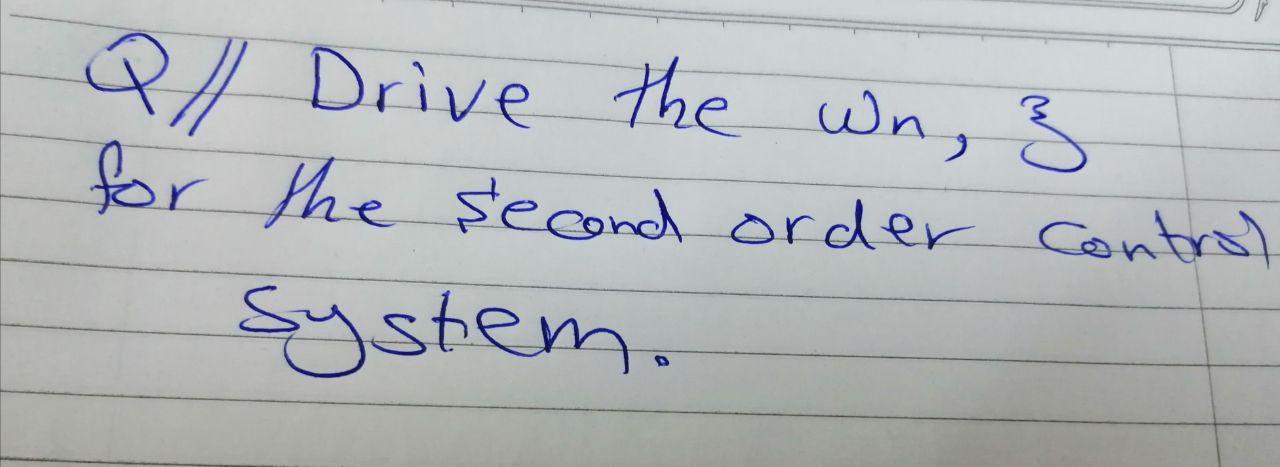 Q// Drive the wn, ξ
for the second order control
system.